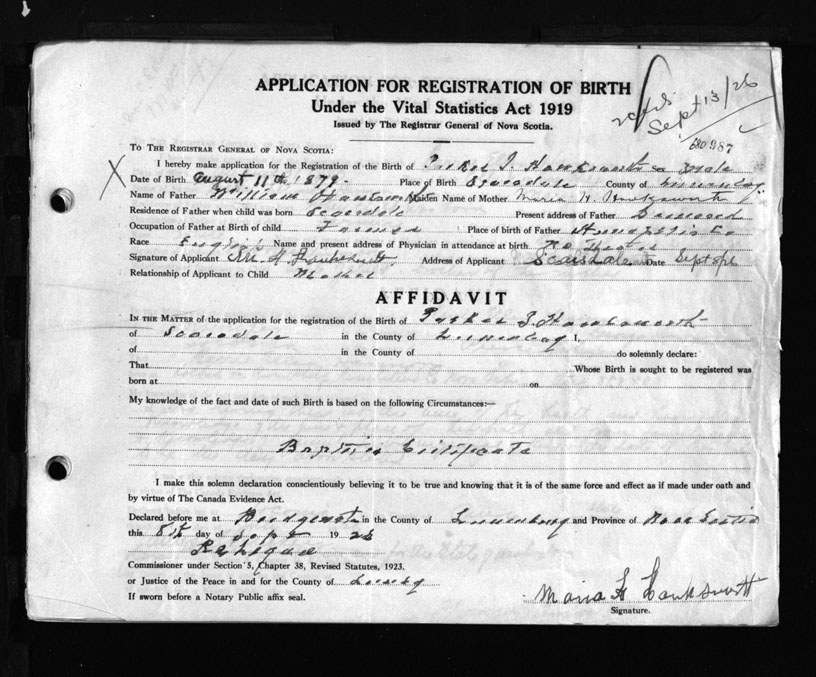 APPLICATION FOR REGISTRATION OF BIRTH
Under the Vital Statistics Act 1919
Issued by The Registrar General of Nova Scotia.
Sept 13/26
987
TO THE REGISTRAR GENERAL OF NOVA SCOTIA:
X I hereby make application for the Registration of the Birth of Parker Hawksworth Sex Male
Date of Birth August 11th 1879 Place of Birth Scarsdale County of
Name of Father William Maiden Name of Mother Maria H Hawksworth
Residence of Father when child was born Scarsdale Present address of Father Deceased
Occupation of Father at Birth of child Farmer Place of birth of Father Annapolis Co
Race English Name and present address of Physician in attendance at birth No Doctor
Signature of Applicant M. H. Hawksworth Address of Applicant Scarsdale Date Sept 8
Relationship of Applicant to Child Mother
AFFIDAVIT
IN THE MATTER of the application for the registration of the Birth of Parker Hawksworth
of Scarsdale in the County of Lunenburg I,
of in the County of do solemnly declare:
That Whose Birth is sought to be registered was
born at on
My knowledge of the fact and date of such Birth is based on the following Circumstances:—
Baptism Certificate
I make this solemn declaration conscientiously believing it to be true and knowing that it is of the same force and effect as if made under oath and
by virtue of The Canada Evidence Act.
Declared before me at Bridgewater in the County of Lunenburg and Province of Nova Scotia
this 8th day of Sept 1926
Commissioner under Section 5, Chapter 38, Revised Statutes, 1923.
or Justice of the Peace in and for the County of
If sworn before a Notary Public affix seal.
Maria H Hawksworth
Signature.